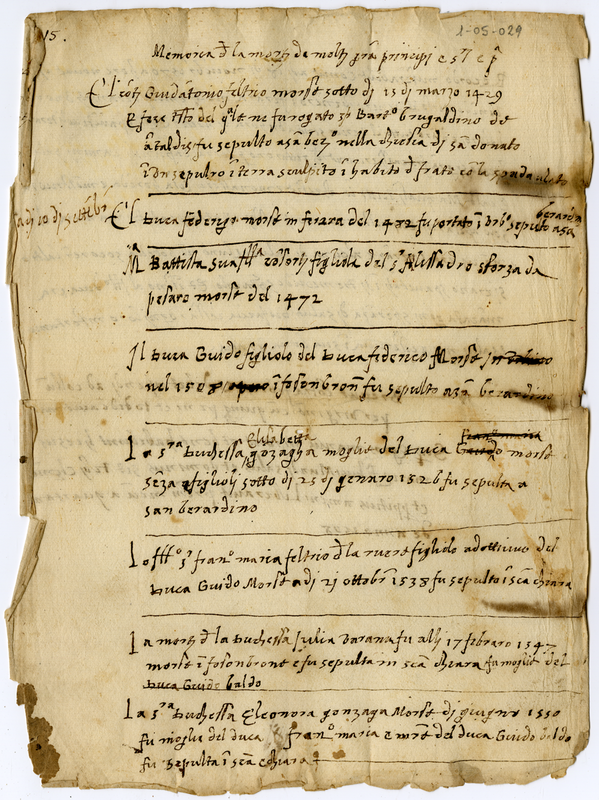 15.
1-05-029
Memoria d la morte de molti pri principi e sri e
El cōte Guidātonio feltrio morse sotto dì 15 di marzo 1429
e fece del q.le ne fu rogato Bart.o brugaldino de
cataldis, fu sepulto a sā ber.no nella chiesia di sā donato
ī ūn sepulcro ī terra sculpito ī habito d frate cō la spada a lato
a di 10 di settēbr
El Duca federigo morse in ferara del 1482 fu portato ī urb.o sepulto a sā
berardino
M.a Battista sua cōsorte figliola del s.r Alissādro sforza da
pesaro morse del 1472
Il Duca Guido figliolo del Duca federico Morse in
nel 1508 ī fosonbron fu sepulto a sā berardino
La s.ra Duchessa gōzagha moglie del Duca Guido morse
Elisabetta
Franc.o maria
sēza figlioli sotto dì 25 di genaro 1526 fu sepulta a
san berardino
Lo Ill.o s.r fran.o maria feltrio d la rvere figliolo adottivo del
Duca Guido Morse a di 21 ottobr 1538 fu sepulto ī sca chiara
La morte d la Duchessa Julia Varana fu alli 17 febraro 1547
morse ī fosonbrone e fu sepulta in sca chiara fu moglie del
Duca Guido baldo
La s.ra Duchessa Eleonora gonzaga Morse di giugno 1550
fu moglie del duca fran.o maria e mre del duca Guido baldo
fu sepulta ī sca chiara